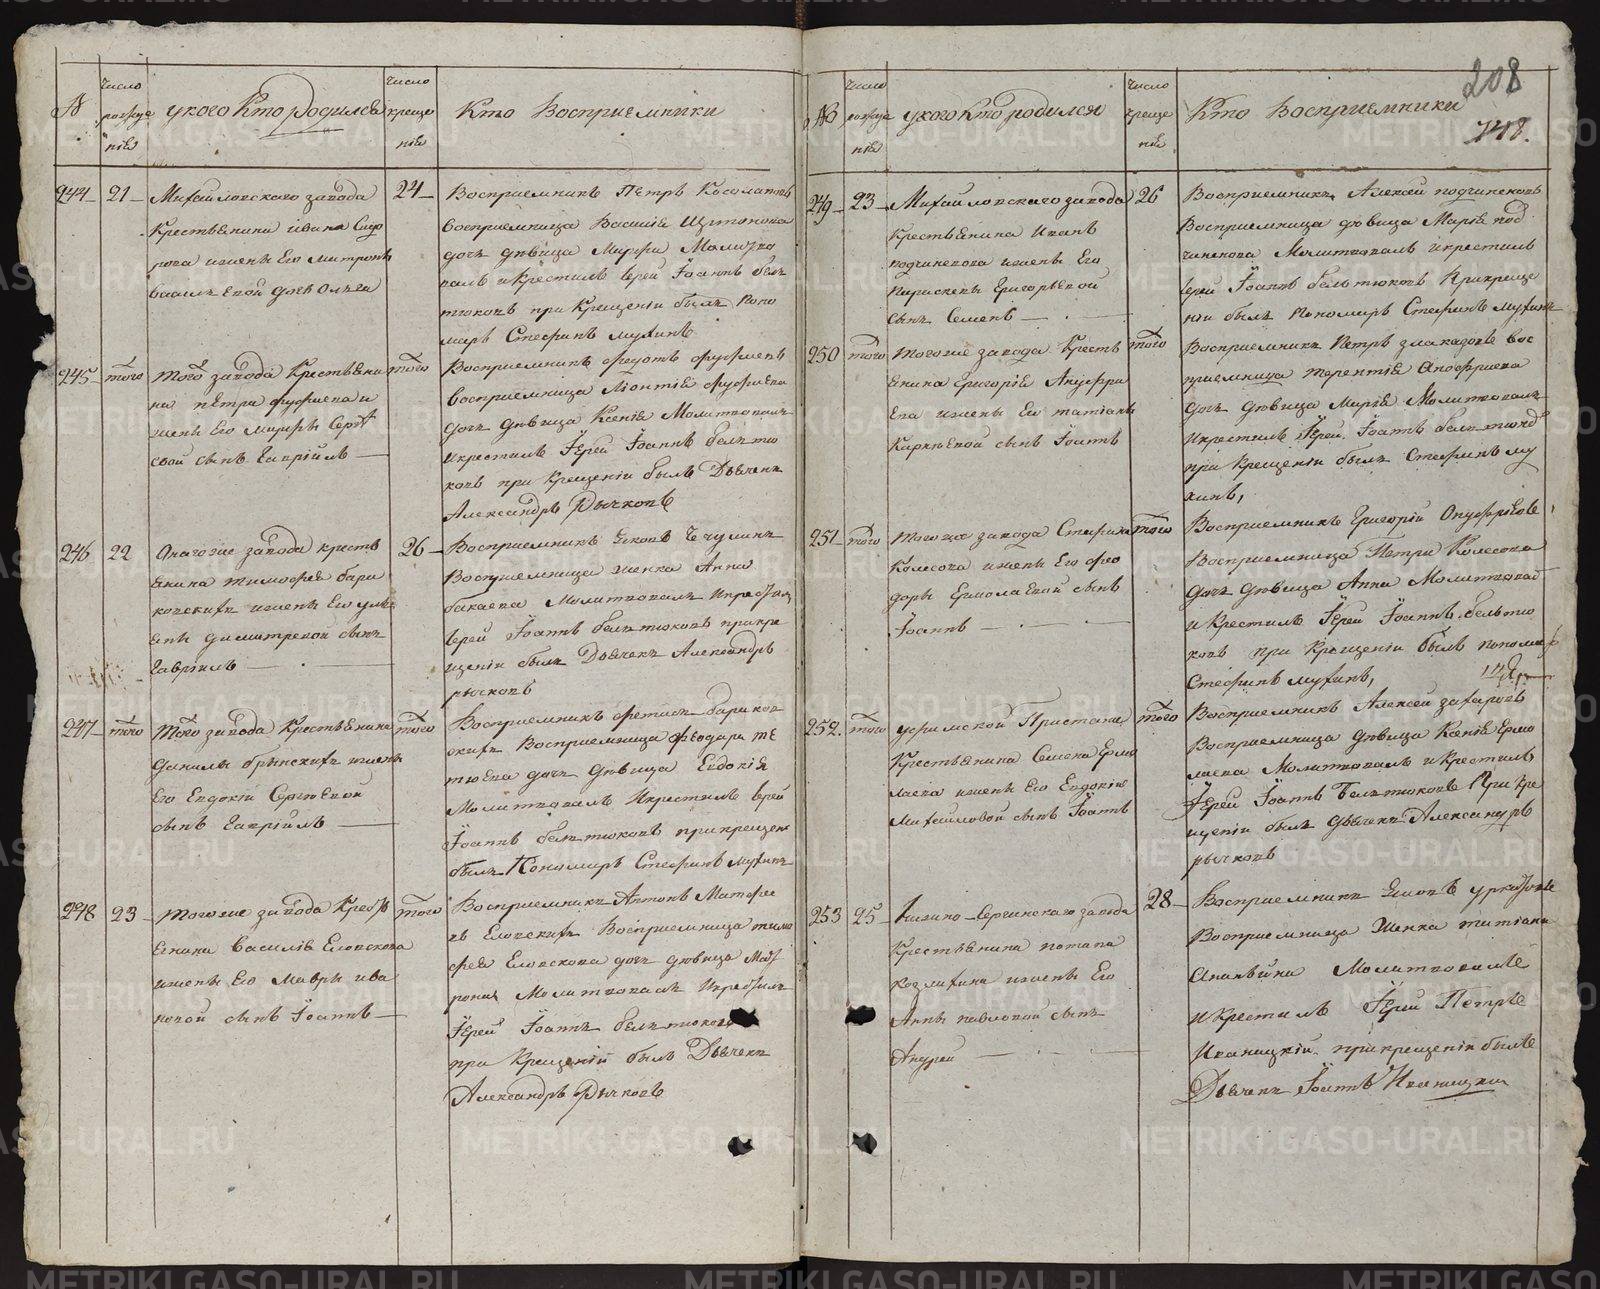 №
число рожде нія
у кого кто родился
число креще нія
Кто Восприемники
244
21
Михайловскаго завода
Крестьянина Ивана Сидо
рова жены Его Митроды
Васильевой дочь Ольга
24
Восприемникъ Петръ
восприемница Василія
дочь девица Марфа Молитво
валъ и Крестилъ Іерей Іоаннъ Бель
тюковъ при Крещеніи былъ Поно
марь Стефанъ Мухинъ
245
того
того завода Крестьяни
на Петра
жены Его Марфы
сынъ Гавріилъ
того
Восприемникъ Федотъ
восприемница Леонтія
дочь девица Ксенія Молитвовалъ
и крестилъ Іерей Іоаннъ Бельтю
ковъ при Крещеніи былъ Дьячекъ
Александръ Рычковъ
246
22
Онагоже завода кресть
янина Тимофея Бари
ковскихъ жены Его Улья
ны Димитревой сынъ
Гавріилъ
26
Восприемникъ Яковъ Чечулинъ
Восприемница женка Анна
Бакаева Молитвовалъ и крестилъ
Іерей Іоаннъ Бельтюковъ при кре
щеніи былъ Дьячекъ Александръ
рычковъ
247
того
того завода Крестьянина
Данилы жены
Его Евдокіи Сергеевой
сынъ Гавріилъ
того
Восприемникъ Фетисъ Бариков
скихъ Восприемница Феодора
дочь девица Евдокія
Молитвовалъ и крестилъ Іерей
Іоаннъ Бельтюковъ при крещені
былъ Пономарь Стефанъ Мухинъ
248
23
того же завода Кресть
янина Василія Еловскова
жены Его Мавры Ива
новой сынъ Іоаннъ
того
Восприемникъ Антонъ Матфее
въ Еловскихъ Восприемница Тимо
фея Еловскова дочь девица Мат
рона Молитвовалъ и крестилъ
Іерей Іоаннъ Бельтюковъ
при Крещеніи былъ Дьячекъ
Александръ Рычковъ
208
748.
№
число рожде нія
у кого кто родился
число креще нія
Кто Восприемники
249
23
Михайловскаго завода
Крестьянина Ивана
Подчиненова жены Его
Парискевы Григорьевой
сынъ Семенъ
26
Восприемникъ Алексей Подчиненовъ
Восприемница девица Марія Под
чиненова Молитвовалъ и крестилъ
Іерей Іоаннъ Бельтюковъ При креще
ніи былъ Пономарь Стефанъ Мухинъ
250
того
того же завода Кресть
янина Григорія Ануфри
ева жены Его Татіаны
Карпеевой сынъ Іоаннъ
того
Восприемникъ Петръ Злоказовъ вос
приемница Терентія Анофріева
дочь девица Марія Молитвовалъ
и крестилъ Іерей Іоаннъ Бельтюков
при Крещеніи былъ Стефанъ Му
хинъ,
251
того
того же завода Стефана
Колесова жены Его Фео
доры Ермолаевой сынъ
Іоаннъ
того
Восприемникъ Григорій Онуфріевъ
Восприемница Петра Колесова
дочь девица Анна Молитвовал
и Крестилъ Іерей Іоаннъ Бельтю
ковъ при Крещеніи былъ пономар
Стефанъ Мухинъ,
252.
того
Уфимской Пристани
Крестьянина Семена Ермо
лаева жены Его Евдокіи
Михайловой сынъ Іоаннъ
того
Восприемникъ Алексей Захаровъ
Восприемница девица Ксенія Ермо
лаева Молитвовалъ и крестилъ
Іерей Іоаннъ Бельтюковъ При Кре
щеніи былъ Дьячекъ Александръ
рычковъ
253
25
Нижно-Сергинскаго завода
Крестьянина Потапа
Козлихина жены Его
Анны Павловой сынъ
Андрей
28
Восприемникъ Яковъ
Восприемница Женка Татіана
Ананьина Молитвовалъ
и Крестилъ Іерей Петръ
Иваницкій при крещеніи былъ
Дьячекъ Іоаннъ Иваницкій